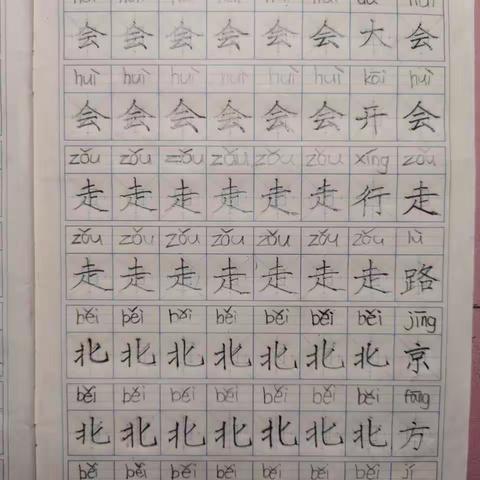 会 会 会 会 会 会 大 会
huì huì huì huì huì huì kāi huì
会 会 会 会 会 会 开 会
zǒu zǒu zǒu zǒu zǒu zǒu xíng zǒu
走 走 走 走 走 走 行 走
zǒu zǒu zǒu zǒu zǒu zǒu zǒu lù
走 走 走 走 走 走 走 路
běi běi běi běi běi běi běi jīng
北 北 北 北 北 北 北 京
běi běi běi běi běi běi běi fāng
北 北 北 北 北 北 北 方
běi běi běi běi běi běi běi